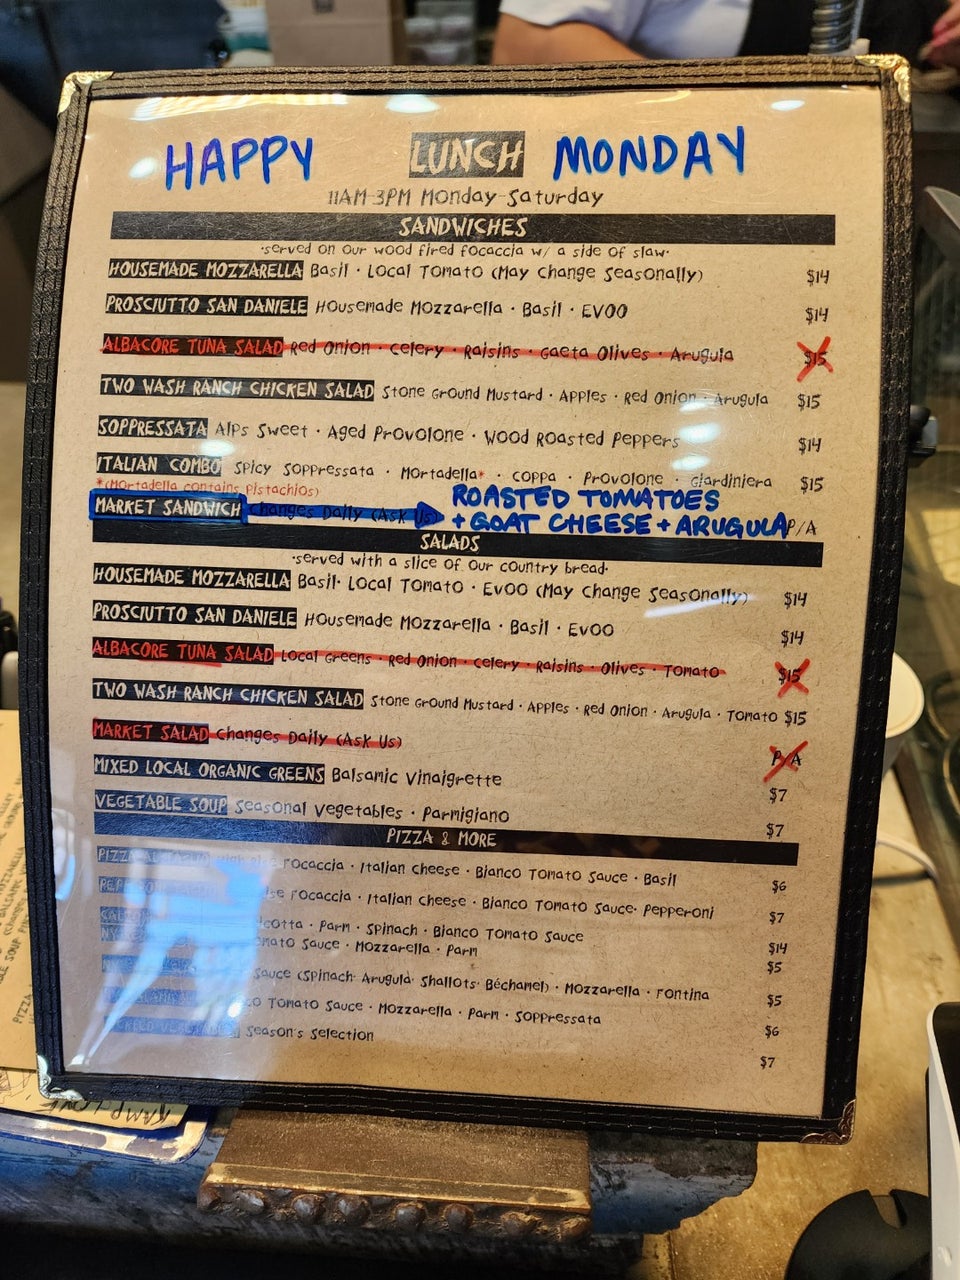 HAPPY LUNCH MONDAY
11AM-3PM Monday-Saturday
SANDWICHES
·served on our wood fired focaccia w/ a side of slaw·
HOUSEMADE MOZZARELLA Basil · Local Tomato (May Change Seasonally) $14
PROSCIUTTO SAN DANIELE Housemade Mozzarella · Basil · EVOO $14
ALBACORE TUNA SALAD Red Onion · Celery · Raisins · Gaeta Olives · Arugula $15
TWO WASH RANCH CHICKEN SALAD Stone Ground Mustard · Apples · Red Onion · Arugula $15
SOPPRESSATA Alps Sweet · Aged Provolone · Wood Roasted Peppers $14
ITALIAN COMBO Spicy Soppressata · Mortadella* · Coppa · Provolone · Giardiniera $15
*(Mortadella contains Pistachios)
MARKET SANDWICH Changes Daily (Ask Us) ROASTED TOMATOES
+ GOAT CHEESE + ARUGULA P/A
SALADS
·served with a slice of our country bread·
HOUSEMADE MOZZARELLA Basil· Local Tomato · Evoo (May Change Seasonally) $14
PROSCIUTTO SAN DANIELE Housemade Mozzarella · Basil · Evoo $14
ALBACORE TUNA SALAD Local Greens · Red Onion · Celery · Raisins · Olives · Tomato $15
TWO WASH RANCH CHICKEN SALAD Stone Ground Mustard · Apples · Red Onion · Arugula · Tomato $15
MARKET SALAD Changes Daily (Ask Us) P/A
MIXED LOCAL ORGANIC GREENS Balsamic Vinaigrette $7
VEGETABLE SOUP Seasonal Vegetables · Parmigiano $7
PIZZA & MORE
PIZZA Focaccia · Italian Cheese · Bianco Tomato Sauce · Basil $6
Focaccia · Italian Cheese · Bianco Tomato Sauce· Pepperoni $7
Parm · Spinach · Bianco Tomato Sauce $14
Sauce · Mozzarella · Parm $5
Sauce (Spinach· Arugula· Shallots· Béchamel) · Mozzarella · Fontina $5
Tomato Sauce · Mozzarella · Parm · Soppressata $6
Season's Selection $7